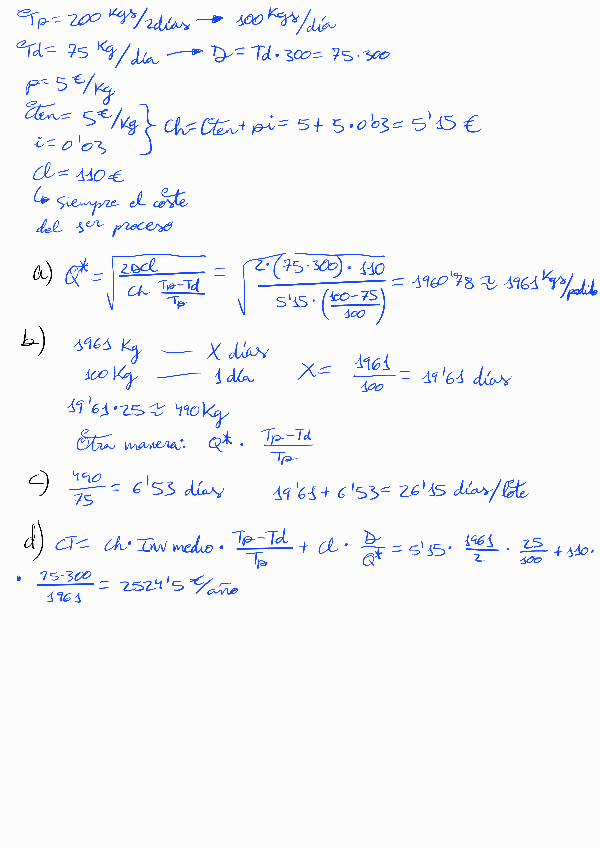 Tp = 200 Kgs/2días → 100 Kgs/día
Td = 75 Kg/día → D = Td · 300 = 75 · 300
p = 5 €/Kg
Cten = 5 €/Kg } Ch = Cten + pi = 5 + 5 · 0'03 = 5'15 €
i = 0'03
Cl = 110 €
↳ siempre el coste
del 1er proceso
a) Q* = √(2DCl / (Ch (Tp-Td)/Tp)) = √(2 · (75 · 300) · 110 / (5'15 · ((100-75)/100))) = 1960'78 ≈ 1961 Kgs/pedido
b) 1961 Kg — X días
100 Kg — 1 día X = 1961/100 = 19'61 días
19'61 · 25 ≈ 490 Kg
Otra manera: Q* · (Tp-Td)/Tp
c) 490/75 = 6'53 días 19'61 + 6'53 = 26'15 días/lote
d) CT = Ch · Inv medio · (Tp-Td)/Tp + Cl · D/Q* = 5'15 · 1961/2 · 25/100 + 110 ·
· 75·300/1961 = 2524'5 €/año